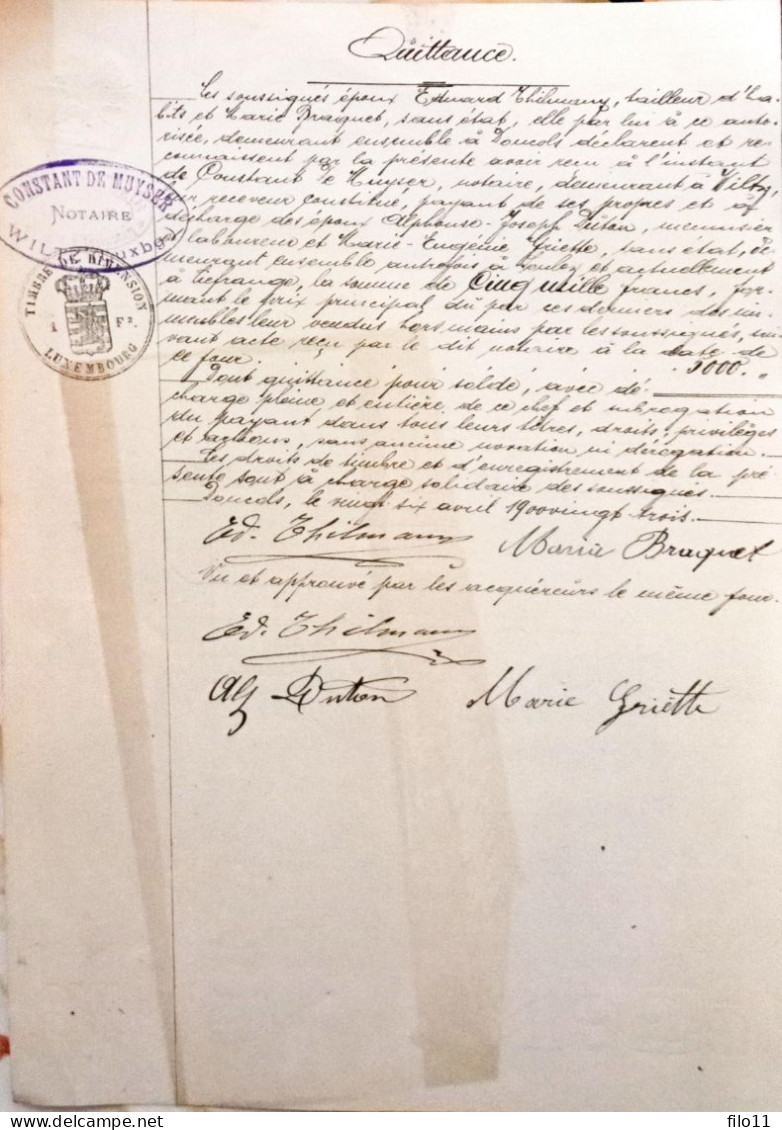 Quittance.
Les soussignés époux Eduard Thilmany, tailleur d'ha-
bits et Marie Braquet, sans état, elle par lui à ce auto-
risée, demeurant ensemble à Doncols déclarent et re-
connaissent par la présente avoir reçu à l'instant
de Constant de Muyser, notaire, demeurant à Wiltz,
receveur constitué, payant de ses propres et à
décharge des époux Alphonse-Joseph Dution, menuisier
et laboureur et Marie-Eugénie Griette, sans état, de-
meurant ensemble autrefois à et actuellement
à la somme de Cinq mille francs, for-
mant le prix principal dû par ces derniers des im-
meubles leur vendus hors mains par les soussignés, sui-
vant acte reçu par le dit notaire à la date de
ce jour. 5000.-"
Dont quittance pour solde, avec dé-
charge pleine et entière de ce chef et subrogation
du payant dans tous leurs titres, droits, privilèges
et actions, sans aucune novation ni dérogation.
Les droits de timbre et d'enregistrement de la pré-
sente sont à charge solidaire des soussignés.
Doncols, le vingt six avril 1900vingt trois.
Ed. Thilmany Marie Braquet
Vu et approuvé par les acquéreurs le même jour.
Ed. Thilmany
Alf Dution Marie Griette
CONSTANT DE MUYSER
NOTAIRE
WILTZ Luxbg
TIMBRE DE DIMENSION
1 Fr.
LUXEMBOURG
delcampe.net
filo11